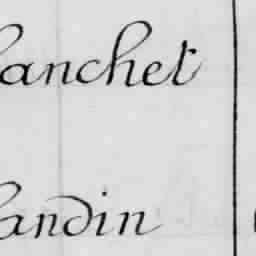 lanchet
landin